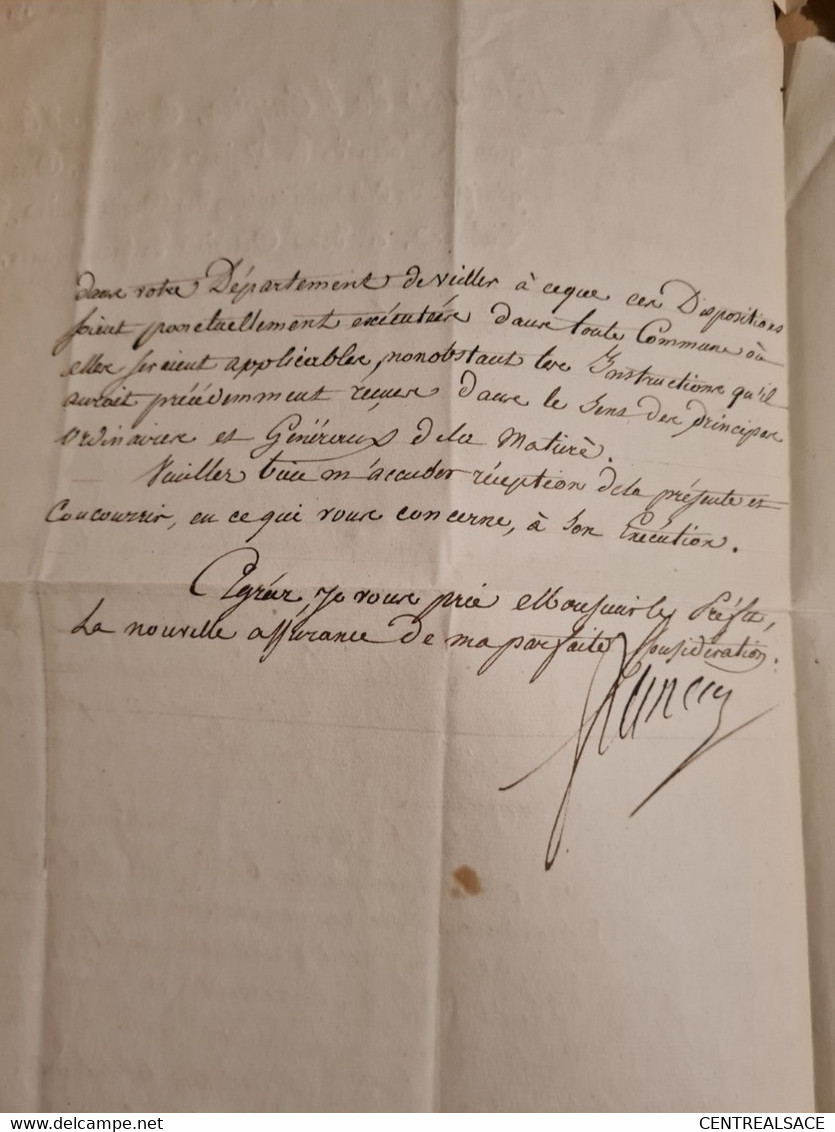 dans votre Département de veiller à ceque ces Dispositions
soient ponctuellement exécutées dans toute Commune où
elles seraient applicables, nonobstant les Instructions qu'il
aurait précédemment reçues dans le sens des principes
Ordinaires et Généraux de la Matière.
Veuillez bien m'accuser réception de la présente et
Concourrir, en ce qui vous concerne, à son Exécution.
Agréez je vous prie Monsieur le Préfet,
La nouvelle assurance de ma parfaite Considération.
CENTREALSACE